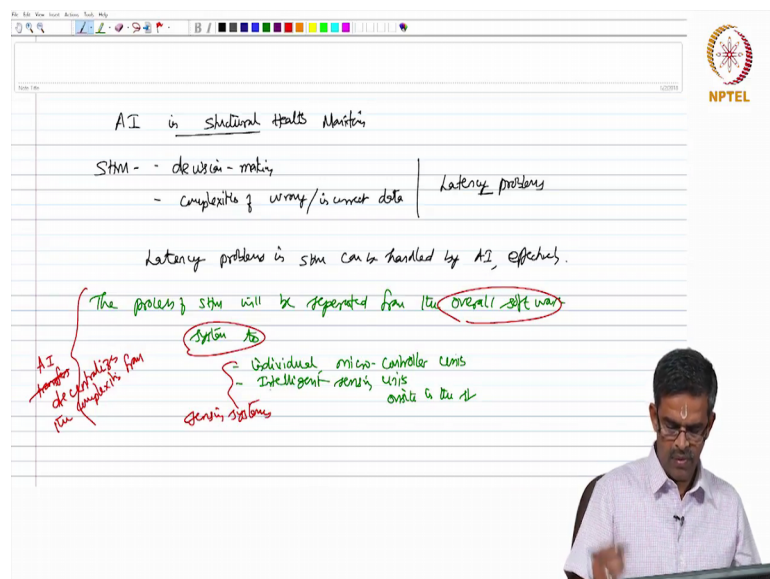 File Edit View Insert Actions Tools Help
B I
Note Title
5/2/2018
NPTEL
AI in Structural Health Monitoring
SHM - - decision-making
- complexities of wrong/incorrect data
Latency problems
Latency problems in SHM can be handled by AI, effectively.
The process of SHM will be seperated from the overall software
system to
- individual micro-controller units
- Intelligent sensing units
onsite in the st
AI
transfers
decentralizes from
the complexities
sensing systems